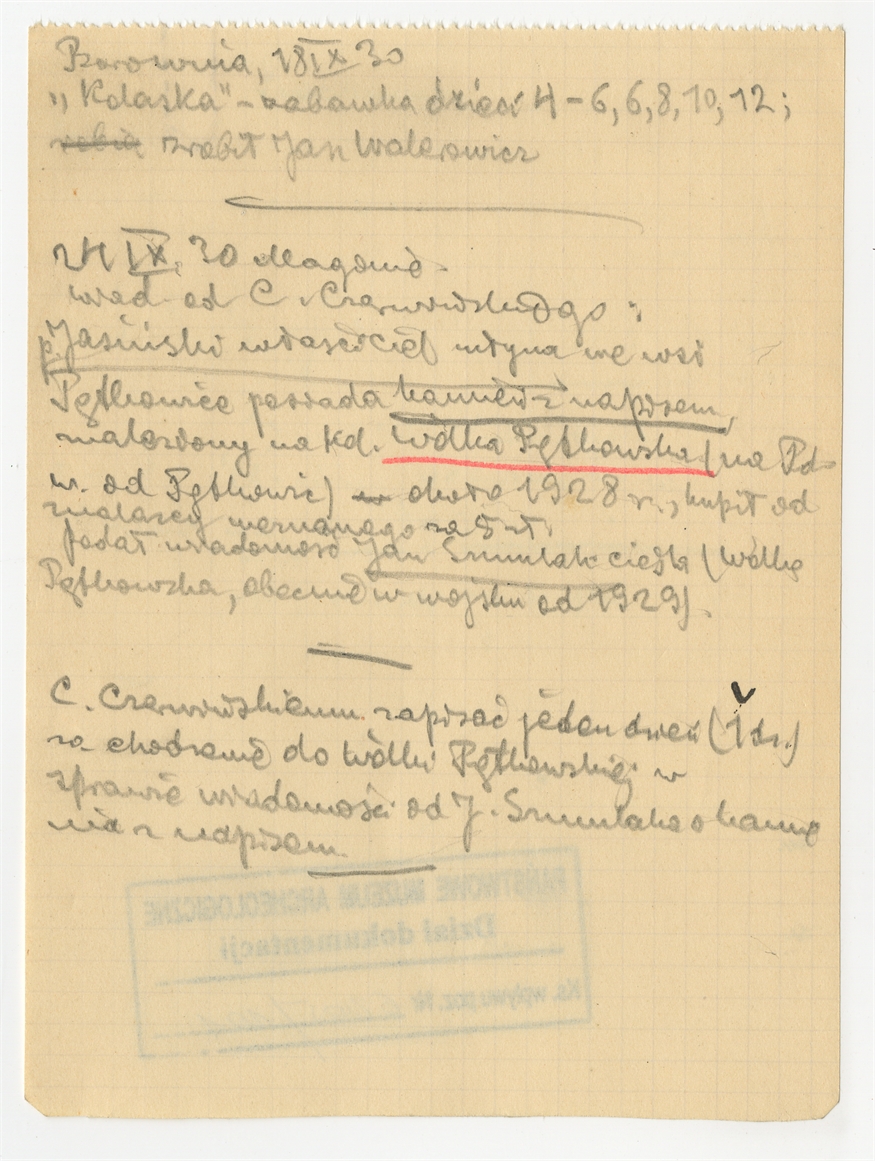 Borownia, 18 IX 30
„Kolaska" – zabawka dzieci 4 – 6, 6, 8, 10, 12;
robią zrobił Jan Walerowicz
24 IX. 30
wiad. od C. Czerwińskiego:
p. Jasiński właściciel młyna we wsi
Pętkowice posiada kamień z napisem,
znaleziony na kol. Wólka Pętkowska (na Pd
w. od Pętkowic) około 1928 r., kupił od
znalazcy nieznanego za 5 zł.
podał wiadomość Jan Szmulak cieśla (Wólka
Pętkowska, obecnie w wojsku od 1929).
C. Czerwińskiemu zapisać jeden dzień (1 dz.)
za chodzenie do Wólki Pętkowskiej w
sprawie wiadomości od J. Szmulaka o kamie
niu z napisem
PAŃSTWOWE MUZEUM ARCHEOLOGICZNE
Dział dokumentacji
Ks. wpływu poz. Nr